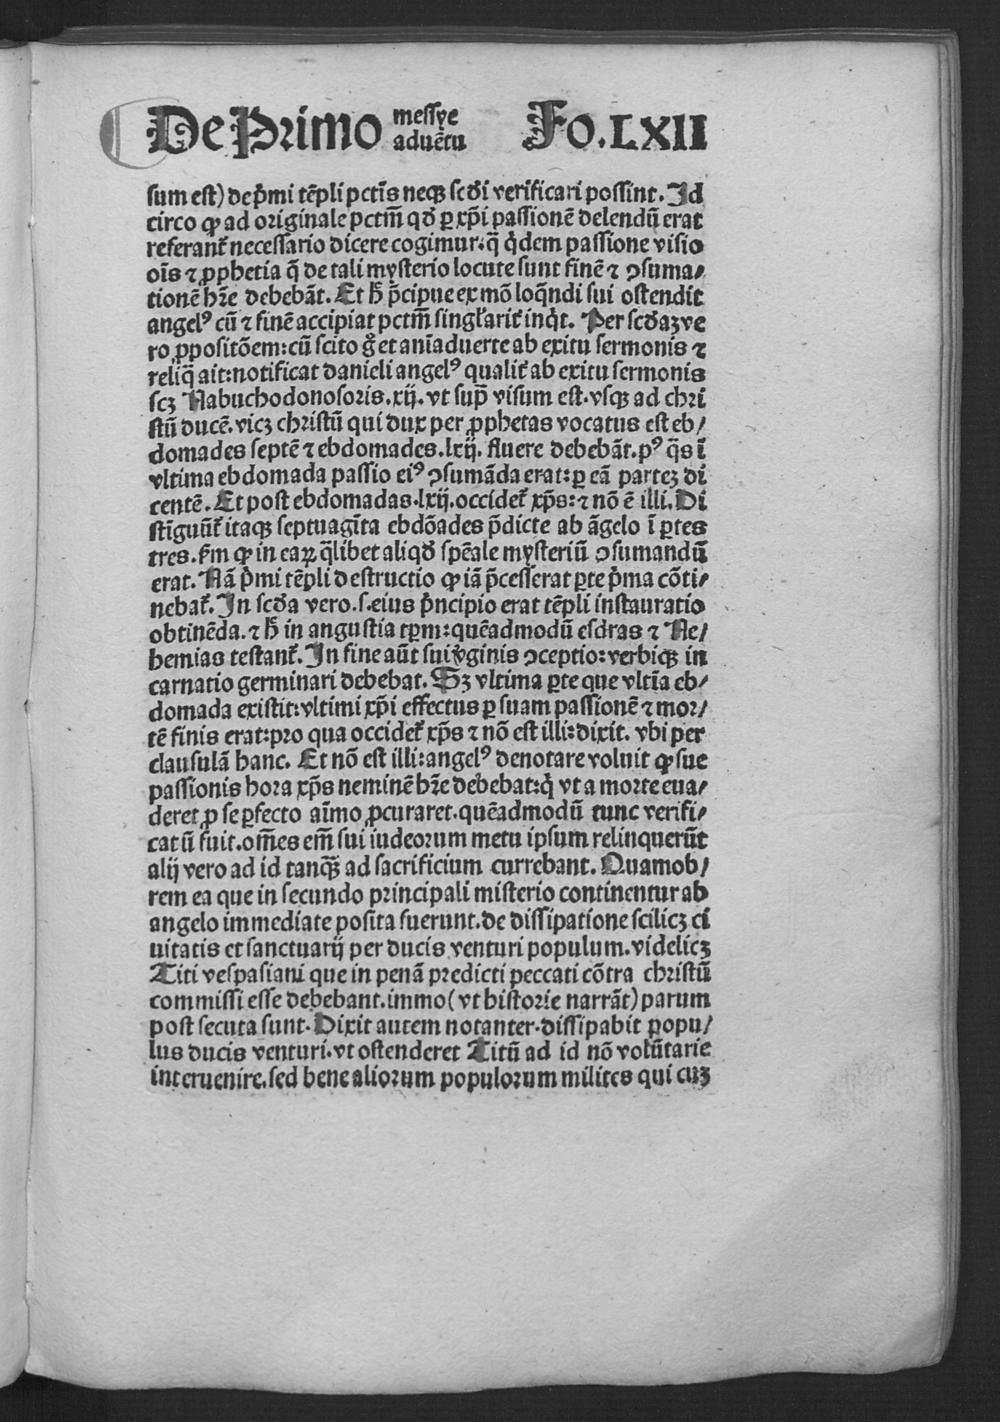 De Primo messye aduētu Fo.LXII
sum est) de p̄mi tēpli pctīs neqꝫ scďi verificari possint. Id
circo ꝙ ad originale pctm̄ qď ꝑ xp̄i passionē delendū erat
referanť necessario dicere cogimur. q̄ q̇dem passione visio
oīs ⁊ ꝓphetia q̄ de tali mysterio locute sunt finē ⁊ ꝯsuma/
tionē hr̄e debebāt. Et h̄ p̄cipue ex mō loq̄ndi sui ostendit
angelꝰ cū ⁊ finē accipiat pctm̄ singľariť inq̇t. Per scďaꝫ ve
ro ꝓpositōem: cū scito g̊ et aniaduerte ab exitu sermonis ⁊
reliq̄ ait: notificat danieli angelꝰ qualiť ab exitu sermonis
scꝫ Nabuchodonosoris. xij. vt sup̄ visum est. vsqꝫ ad chri
stū ducē. vicꝫ christū qui dux per ꝓphetas vocatus est eb/
domades septē ⁊ ebdomades. lxij. fluere debebāt. pꝰ q̄s ī
vltima ebdomada passio eiꝰ ꝯsumāda erat: ꝑ eā parteꝫ di
centē. Et post ebdomadas. lxij. occideť xp̄s: ⁊ nō ē illi. Di
stīguūť itaqꝫ septuagīta ebdōades p̄dicte ab āgelo ī ꝑtes
tres. fm̄ ꝙ in eaꝝ q̄libet aliqď spēale mysteriū ꝯsumandū
erat. Nā p̄mi tēpli destructio ꝙ iā p̄cesserat ꝑte p̄ma cōti/
nebať. In scďa vero. s. eius p̄ncipio erat tēpli instauratio
obtinēda. ⁊ h̄ in angustia tꝑm: quēadmodū esdras ⁊ Ne/
hemias testanť. In fine aūt sui v̇ginis ꝯceptio: verbiqꝫ in
carnatio germinari debebat. Sꝫ vltima ꝑte que vltīa eb/
domada existit: vltimi xp̄i effectus ꝑ suam passionē ⁊ mor/
tē finis erat: pro qua occideť xp̄s ⁊ nō est illi: dixit. vbi per
clausulā hanc. Et nō est illi: angelꝰ denotare voluit ꝙ sue
passionis hora xp̄s neminē hr̄e debebat: q̇ vt a morte eua/
deret ꝓ se ꝑfecto aīmo ꝓcuraret. quēadmodū tunc verifi/
catū fuit. om̄es em̄ sui iudeorum metu ipsum relinquerūt
alij vero ad id tanqꝫ̄ ad sacrificium currebant. Quamob/
rem ea que in secundo principali misterio continentur ab
angelo immediate posita fuerunt. de dissipatione scilicꝫ ci
uitatis et sanctuarij per ducis venturi populum. videlicꝫ
Titi vespasiani que in penā predicti peccati cōtra christū
commissi esse debebant. immo (vt historie narrāt) parum
post secuta sunt. Dixit autem notanter. dissipabit popu/
lus ducis venturi. vt ostenderet Titū ad id nō volūtarie
interuenire. sed bene aliorum populorum milites qui cuꝫ